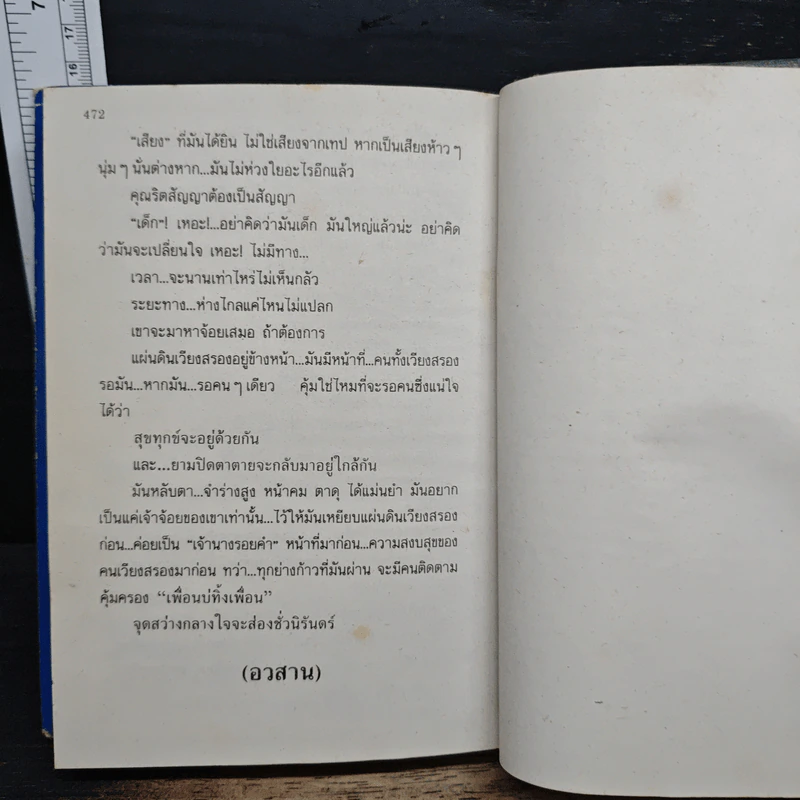 472
"เสียง" ที่มันได้ยิน ไม่ใช่เสียงจากเทป หากเป็นเสียงห้าว ๆ
นุ่ม ๆ นั่นต่างหาก...มันไม่ห่วงใยอะไรอีกแล้ว
คุณริตสัญญาต้องเป็นสัญญา
"เด็ก"! เหอะ!...อย่าคิดว่ามันเด็ก มันใหญ่แล้วน่ะ อย่าคิด
ว่ามันจะเปลี่ยนใจ เหอะ! ไม่มีทาง...
เวลา...จะนานเท่าไหร่ไม่เห็นกลัว
ระยะทาง...ห่างไกลแค่ไหนไม่แปลก
เขาจะมาหาจ้อยเสมอ ถ้าต้องการ
แผ่นดินเวียงสรองอยู่ข้างหน้า...มันมีหน้าที่...คนทั้งเวียงสรอง
รอมัน...หากมัน...รอคน ๆ เดียว คุ้มใช่ไหมที่จะรอคนซึ่งแน่ใจ
ได้ว่า
สุขทุกข์จะอยู่ด้วยกัน
และ...ยามปิดตาตายจะกลับมาอยู่ใกล้กัน
มันหลับตา...จำร่างสูง หน้าคม ตาดุ ได้แม่นยำ มันอยาก
เป็นแค่เจ้าจ้อยของเขาเท่านั้น...ไว้ให้มันเหยียบแผ่นดินเวียงสรอง
ก่อน...ค่อยเป็น "เจ้านางรอยคำ" หน้าที่มาก่อน...ความสงบสุขของ
คนเวียงสรองมาก่อน ทว่า...ทุกย่างก้าวที่มันผ่าน จะมีคนติดตาม
คุ้มครอง "เพื่อนบ่ทิ้งเพื่อน"
จุดสว่างกลางใจจะส่องชั่วนิรันดร์
(อวสาน)
7
17
16